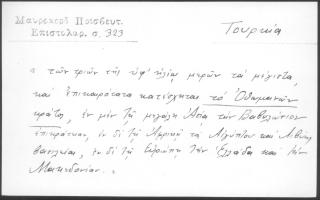 Μαυρεκοῦ Πρεσβευτ.
Ἐπιστολαρ. σ. 323
Τουρκία
« τῶν τριῶν τῆς ὑφ' ἡλίῳ μερῶν τὰ μέγιστα
καὶ ἐπικαιρότατα κατέσχηται τὸ Ὀθωμανῶν
κράτος, ἐν μὲν τῇ μεγάλῃ Ἀσίᾳ τῶν Βαβυλωνίων
ἐπικράτειαν, ἐν δὲ τῇ Ἀφρικῇ τὰ Αἰγύπτου καὶ Λιβύης
βασίλεια, ἐν δὲ τῇ Εὐρώπῃ τὴν Ἑλλάδα καὶ τὴν
Μακεδονίαν. »